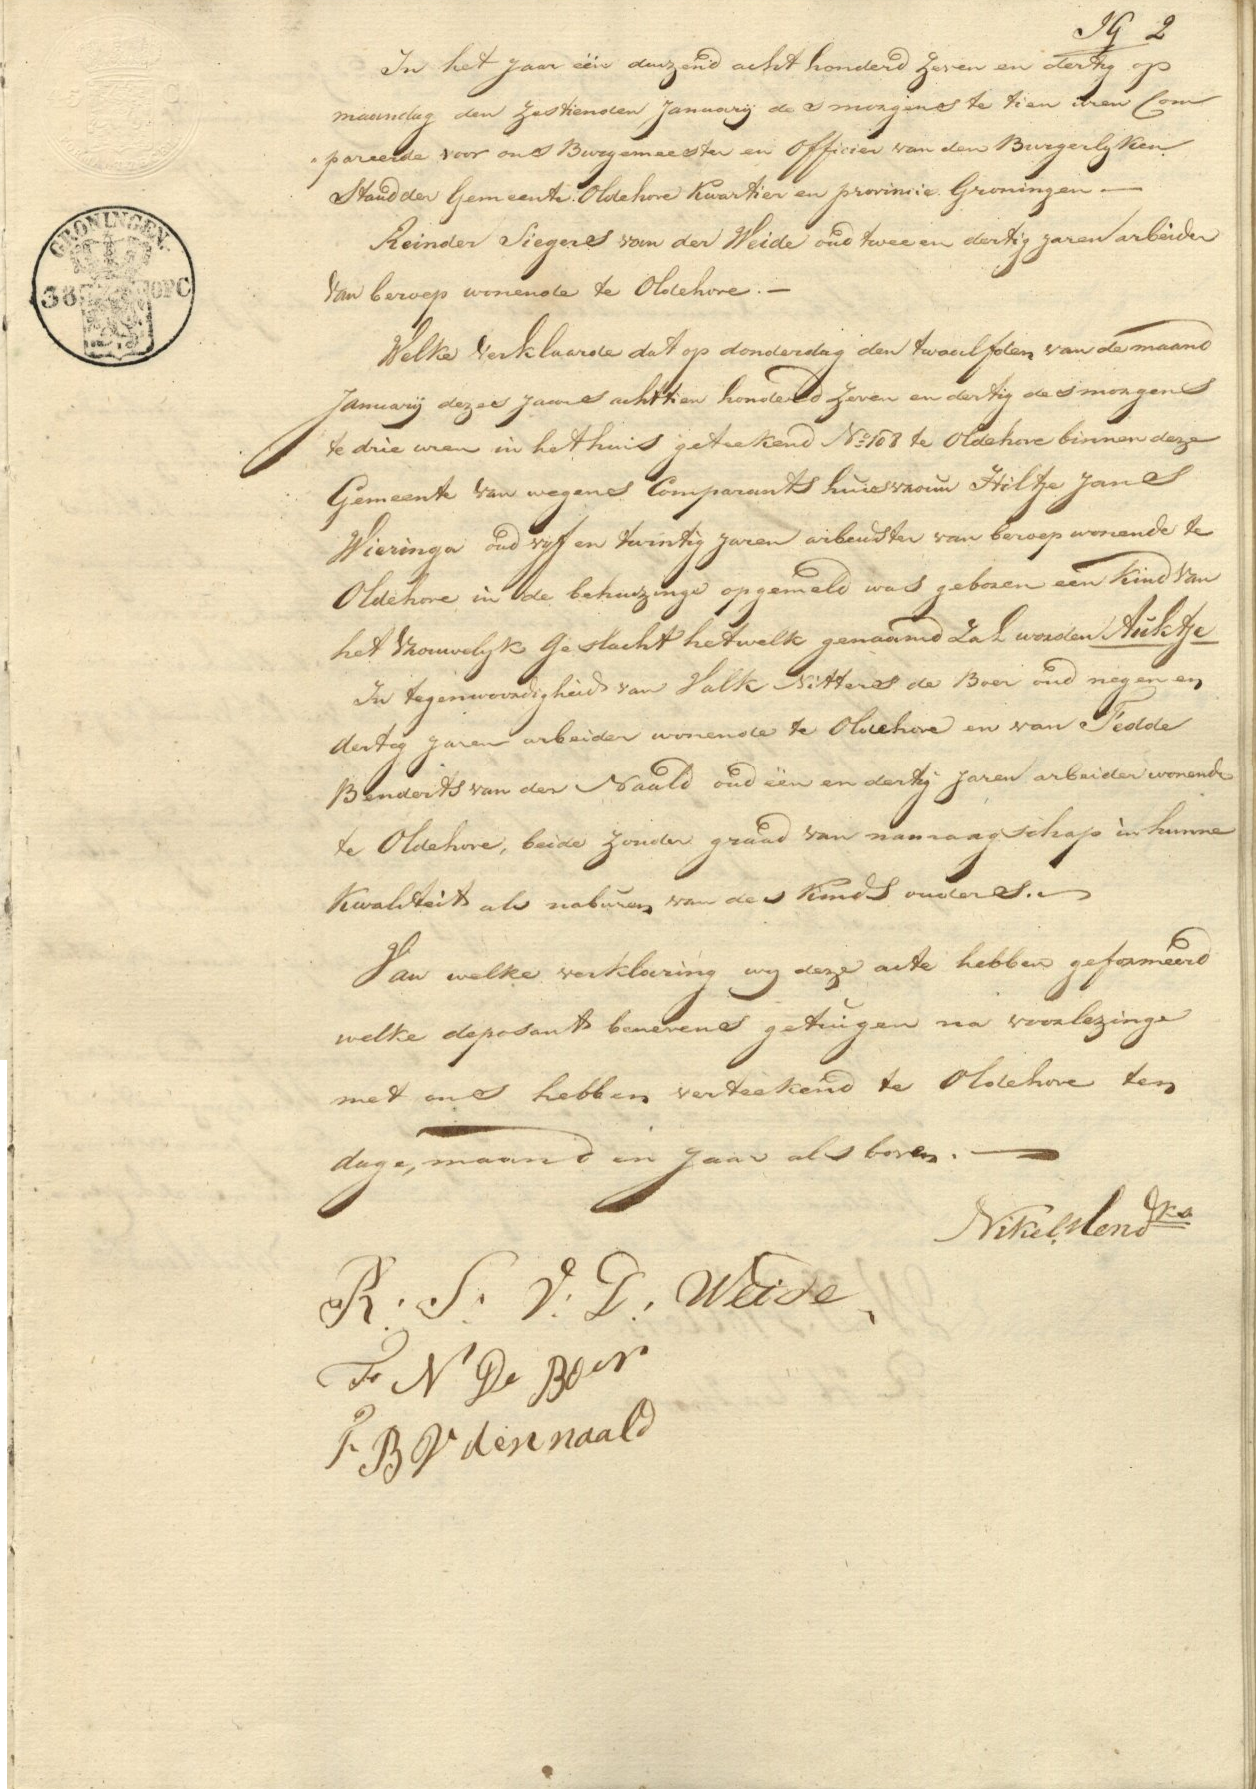 2
In het jaar één duizend acht honderd zeven en dertig op
maandag den zestienden Januarij des morgens te tien uren Com
pareerde voor ons Burgemeester en Officier van den Burgerlyken
Stand der Gemeente Oldehove Kwartier en provincie Groningen —
Reinder Siegers van der Weide oud twee en dertig jaren arbeider
van beroep wonende te Oldehove. —
GRONINGEN.
38 OPC
Welke verklaarde dat op donderdag den twaalfden van de maand
Januarij dezes jaars achttien honderd zeven en dertig des morgens
te drie uren in het huis geteekend No: 108 te Oldehove binnen deze
Gemeente van wegens Comparants huisvrouw Hiltje Jans
Wieringa oud vyf en twintig jaren arbeidster van beroep wonende te
Oldehove in de behuizinge opgemeld was geboren een Kind van
het Vrouwelyk Geslacht hetwelk genaamd zal worden Auktje
In tegenwoordigheid van Falk Nitters de Boer oud negen en
dertig jaren arbeider wonende te Oldehove en van Fedde
Benderts van der Naald oud één en dertig jaren arbeider wonende
te Oldehove, beide zonder graad van namaagschap in hunne
Kwaliteit als naburen van des Kinds ouders. —
Van welke verklaring wy deze acte hebben geformeerd
welke deposant benevens getuigen na voorlezinge
met ons hebben verteekend te Oldehove ten
dage, maand en jaar als boven. —
R. S. V. D. Weide
F N De Boer
F B V der naald